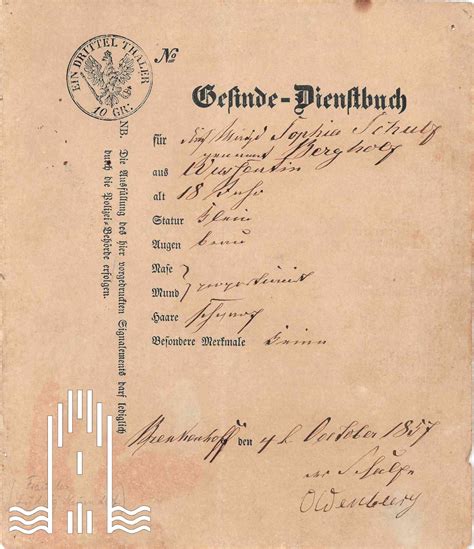 EIN DRITTEL THALER
10 GR.
No
Gesinde-Dienstbuch
für die Magd Sophia Schulz
genannt Bergholz
aus Wustentin
alt 18 Jahr
Statur klein
Augen brau
Nase
Mund } proportionirt
Haare schwarz
Besondere Merkmale keine
den 4 October 1857
der Schulze
Oldenberg
NB. Die Ausfüllung des hier vorgedruckten Signalements darf lediglich
durch die Polizei-Behörde erfolgen.